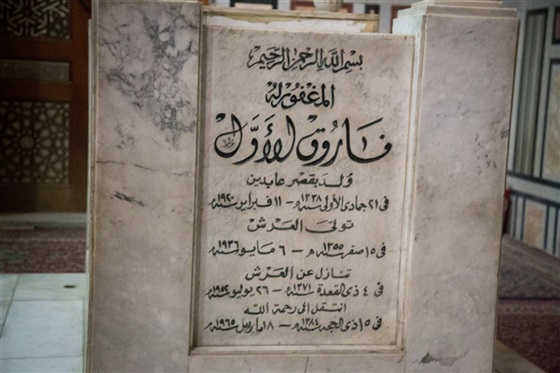 بسم الله الرحمن الرحيم
المغفور له
فاروق الأول
ولد بقصر عابدين
في ٢١ جمادى الأولى سنة ١٣٣٨هـ - ١١ فبراير سنة ١٩٢٠م
تولى العرش
في ١٥ صفر سنة ١٣٥٥هـ - ٦ مايو سنة ١٩٣٦م
تنازل عن العرش
في ٤ ذي القعدة سنة ١٣٧١هـ - ٢٦ يوليو سنة ١٩٥٢م
انتقل إلى رحمة الله
في ١٥ ذي الحجة سنة ١٣٨٤هـ - ١٨ مارس سنة ١٩٦٥م